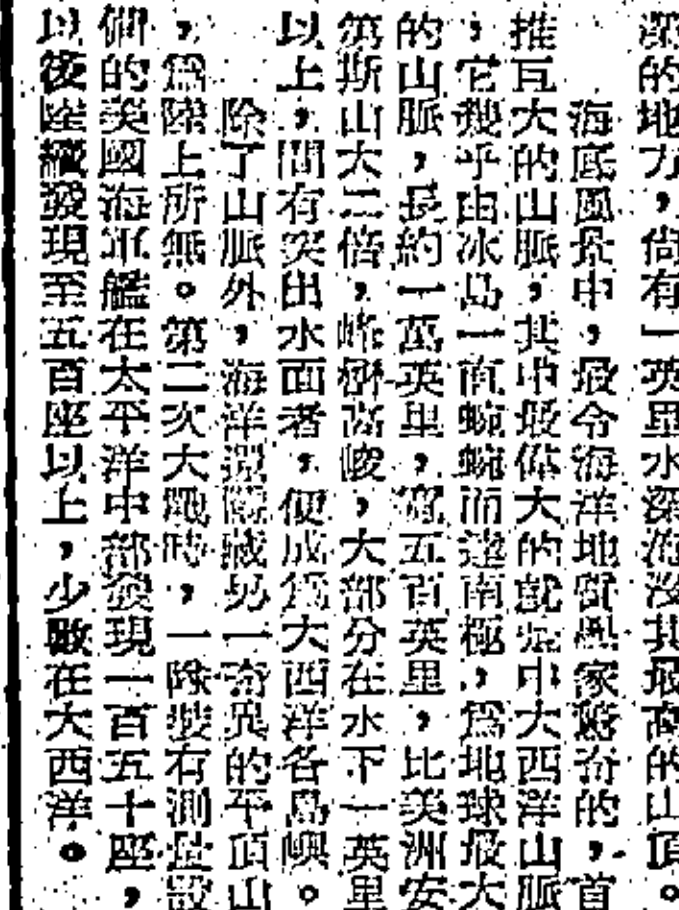 深的地方,尚有一英里水深淹沒其最高的山頂。
海底風景中,最令海洋地質學家驚奇的,首
推巨大的山脈,其中最偉大的就是中大西洋山脈
,它幾乎由冰島一直蜿蜒而達南極,爲地球最大
的山脈,長約一萬英里,寬五百英里,比美洲安
第斯山大二倍,峰巒高峻,大部分在水下一英里
以上,間有突出水面者,便成爲大西洋各島嶼。
除了山脈外,海洋還隱藏另一奇異的平頂山
,爲陸上所無。第二次大戰時,一隊裝有測量設
備的美國海軍艦在太平洋中部發現一百五十座,
以後陸續發現至五百座以上,少數在大西洋。